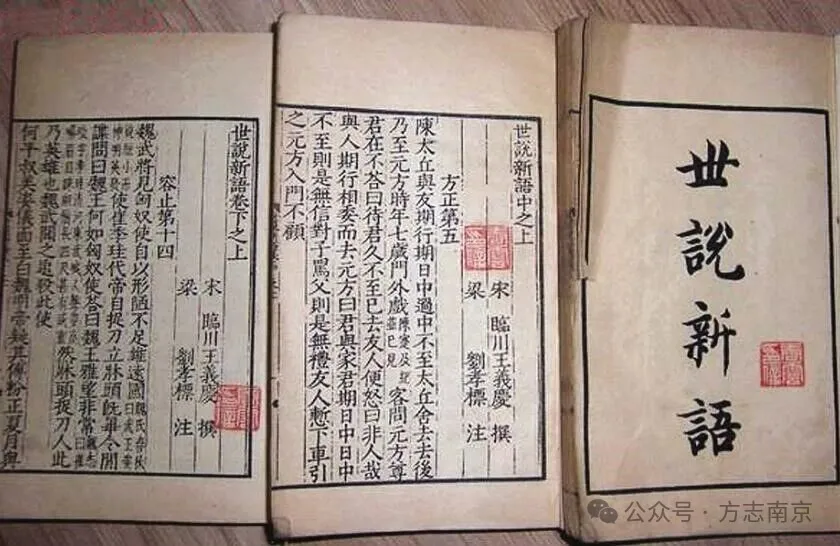 世說新語
世說新語中之上
宋 臨川王義慶 撰
梁 劉孝標 注
方正第五
陳太丘與友期行期日中過中不至太丘舍去去後
乃至元方時年七歲門外戲陳寔及紀並已見客問元方尊
君在不荅曰待君久不至已去友人便怒曰非人哉
與人期行相委而去元方曰君與家君期日中日中
不至則是無信對子罵父則是無禮友人慙下車引
之元方入門不顧
世說新語卷下之上
宋 臨川王義慶 撰
梁 劉孝標 注
容止第十四
魏武將見匈奴使自以形陋不足雄遠國魏氏春秋曰武王姿
貌短小而神明英發使崔季珪代帝自捉刀立牀頭旣畢令間
諜問曰魏王何如匈奴使荅曰魏王雅望非常魏志曰崔
琰字季珪清河東武城人聲姿高暢眉目疏朗鬚長四尺甚有威重然牀頭捉刀人此
乃英雄也魏武聞之追殺此使
何平叔美姿儀面至白魏明帝疑其傅粉正夏月與
公众号·方志南京